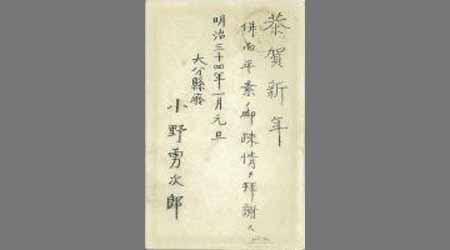 恭賀新年
併而平素ノ御疎情ヲ拝謝ス
明治三十四年一月元旦
大分縣廰
小野勇次郎